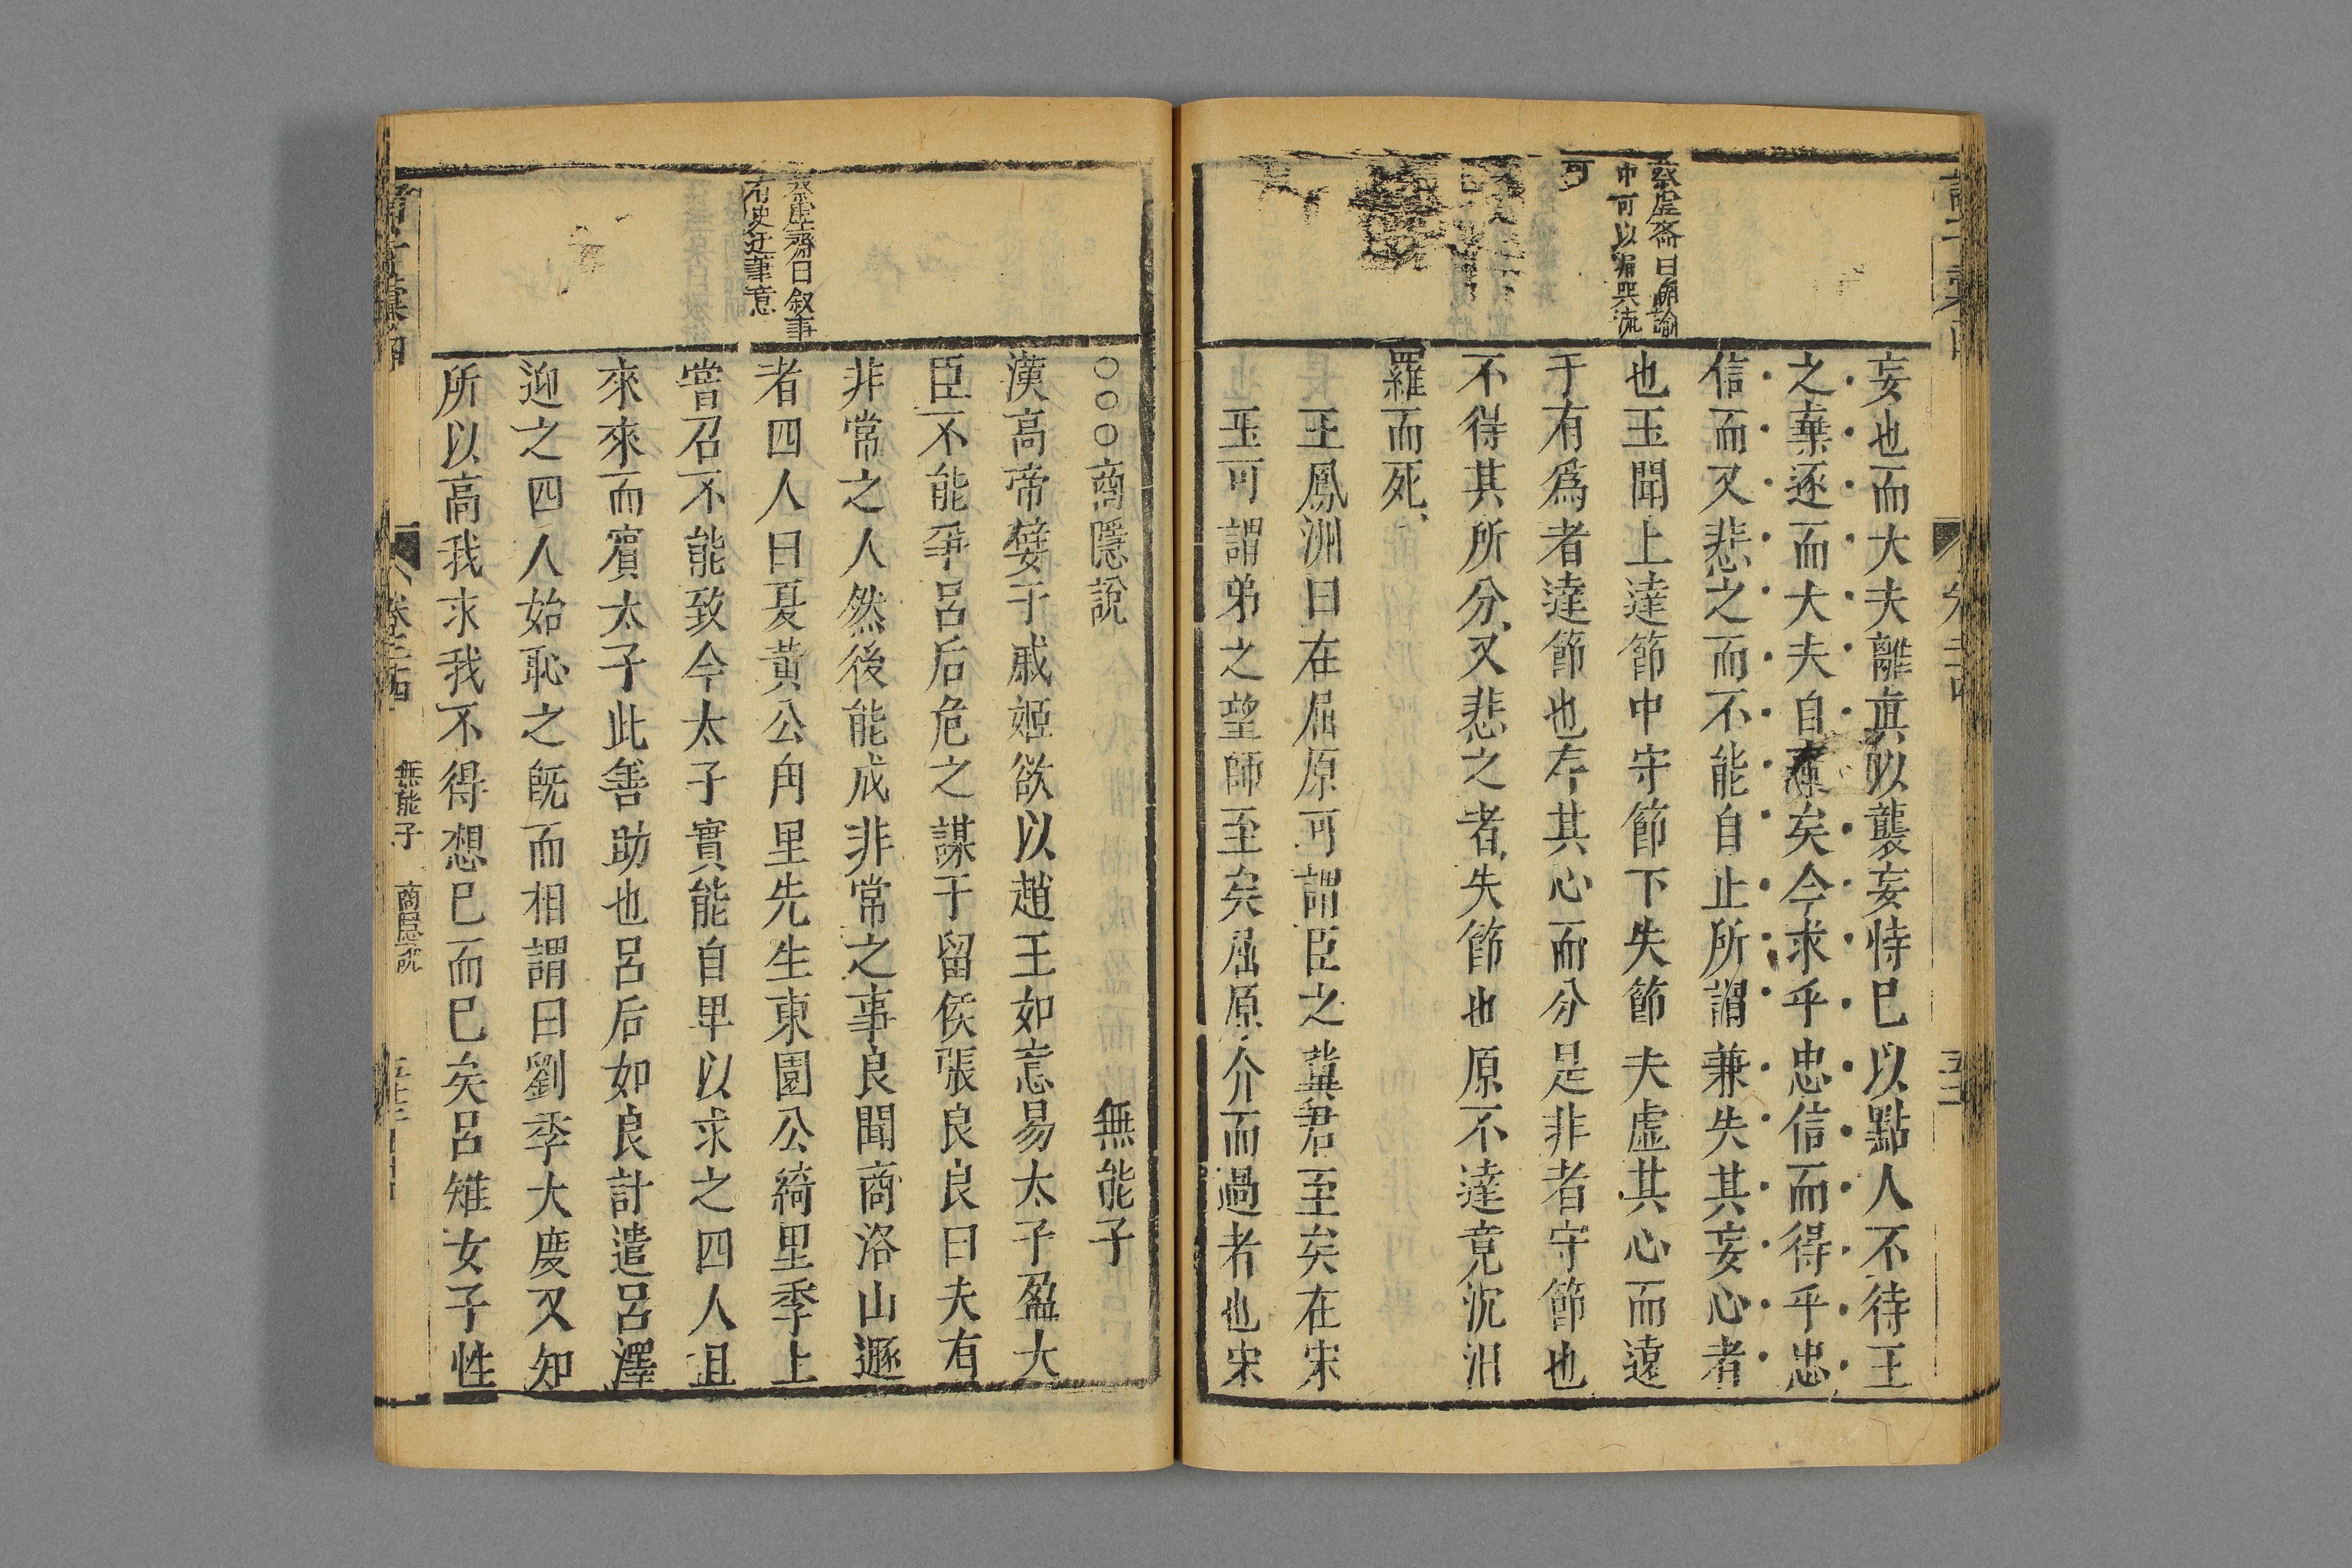 蔡虛齋曰確喻
中可以窮哭流
可
妄也而大夫離眞以襲妄恃巳以黠人不待王
之棄逐而大夫自棄矣今求乎忠信而得乎忠
信而又悲之而不能自止所謂兼失其妄心者
也玉聞上達節中守節下失節夫虛其心而遠
于有爲者達節也存其心而分是非者守節也
不得其所分又悲之者失節也原不達竟沉汨
羅而死
王鳳洲曰在屈原可謂臣之冀君至矣在宋
玉可謂弟之望師至矣屈原介而過者也宋
蔡虛齋曰叙事
有史迁筆意
○○○商隱說
無能子
漢高帝嬖于戚姬欲以趙王如意易太子盈大
臣不能爭呂后危之謀于留侯張良良曰夫有
非常之人然後能成非常之事良聞商洛山遯
者四人曰夏黃公角里先生東園公綺里季上
嘗召不能致今太子實能自卑以求之四人且
來來而賓太子此善助也呂后如良計遣呂澤
迎之四人始恥之旣而相謂曰劉季大度又知
所以高我求我不得想巳而巳矣呂雉女子性
無能子 商隱說